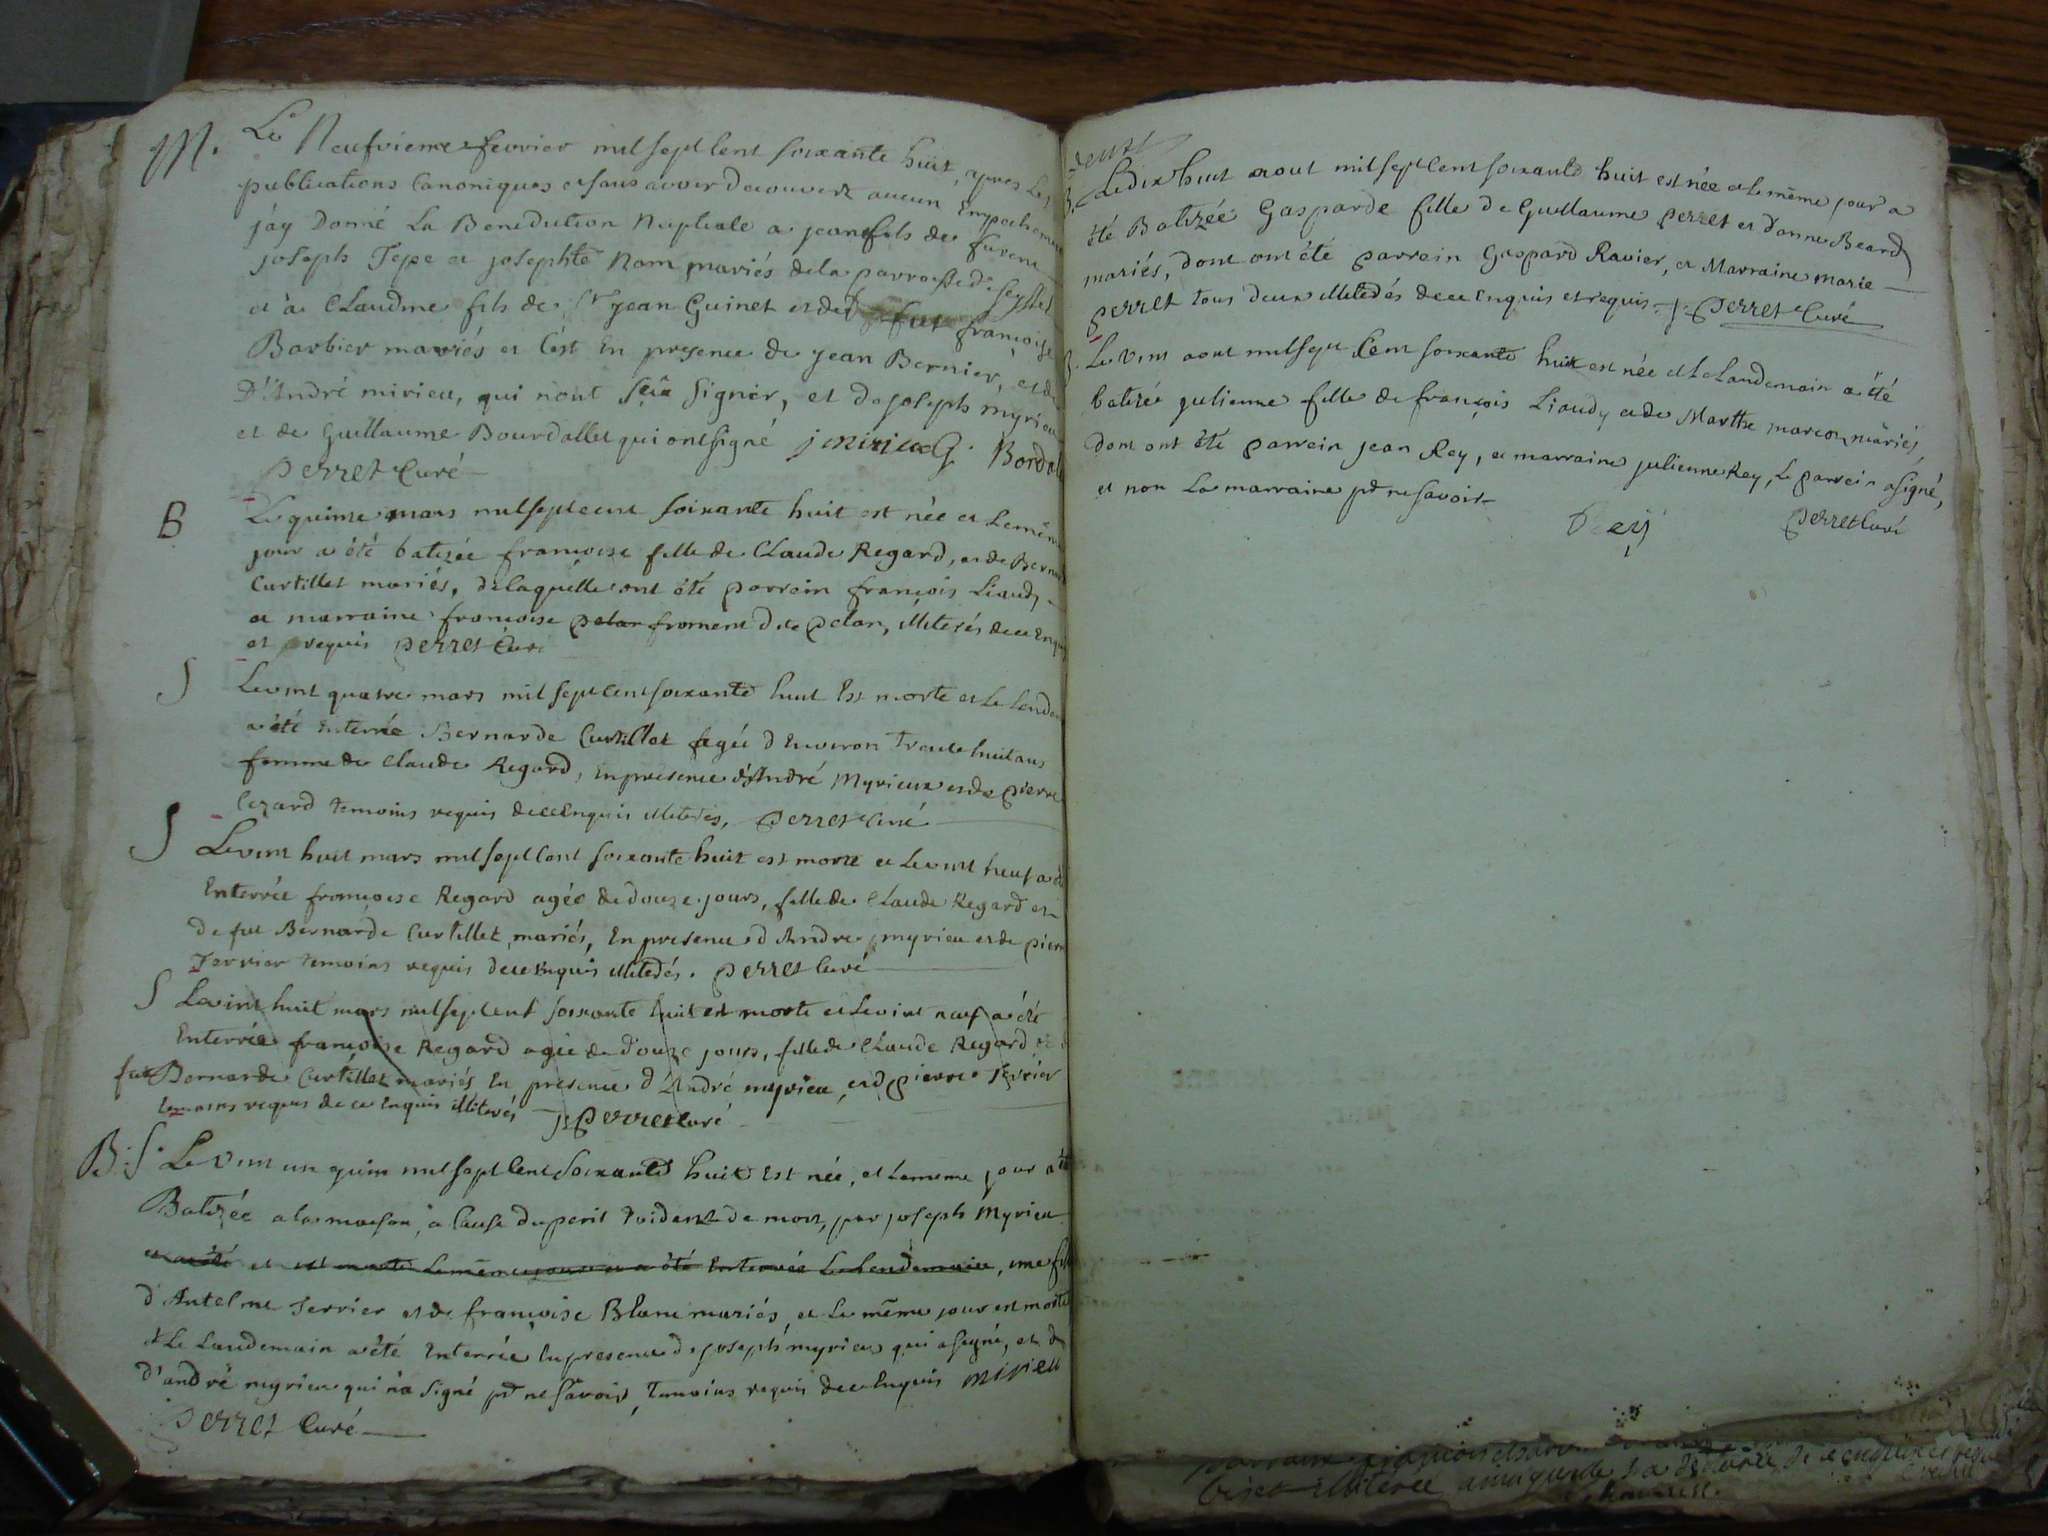 M. Le Neufvieme fevrier mil sept Cent soixante huit, apres Les
publications Canoniques et sans avoir decouvert aucun Empechement
j'ay Donné La Benediction Nuptiale a jean fils de
joseph et josephte mariés de la parroisse de
et a Claudine fils de Sr jean Guinet et de fut françoise
Barbier mariés et c'est En presence de jean Bernier, et de
D'André mirieu, qui n'ont sçu signer, et de joseph myrieu
et de Guillaume Bourdallet qui ont signé j mirieu G. Bordal
Perret Curé
B Le quinze mars mil sept cent soixante huit est née et Le même
jour a été batizée françoise fille de Claude Regard, et de Bernard
Curtillet mariés, de laquelle ont été parrain françois Liaudy
et marraine françoise pelan froment dite pelan, illiterés de ce Enquis
et requis Perret Curé
S Le vint quatre mars mil sept cent soixante huit Est morte et Le Lende
a été Enterrée Bernarde Curtillet agée d'Environ Trente huit ans
femme de Claude Regard, En presence d'André Myrieux et de pierre
temoins requis de ce Enquis illiterés, Perret Curé
S Le vint huit mars mil sept Cent soixante huit est morte et Le vint neuf a été
Enterrée françoise Regard agée de douze jours, fille de Claude Regard et
de fut Bernarde Curtillet mariés, En presence d'Andre myrieu et de pierre
Ferrier temoins requis de ce Enquis illiterés. Perret Curé
S Le vint huit mars mil sept cent soixante huit est morte et Le vint neuf a été
Enterrée françoise Regard agée de douze jours, fille de Claude Regard et
fut Bernarde Curtillet mariés En presence d'André myrieu, et d pierre Ferrier
temoins requis de ce Enquis illiterés Perret Curé
B. S. Le vint un juin mil sept Cent soixante huit Est née, et Le meme jour a été
Batizée a la maison, a Cause du peril Evident de mort, par joseph Myrieu
et a été et est morte Le même jour et a été Enterrée Le Lendemain, une fille
d'Antelme Ferrier et de françoise Blanc mariés, et Le même jour est morte
et Le Landemain a été Enterrée En presence de joseph myrieu qui a signé, et de
d'andré myrieu qui n'a signé pr ne savoir, temoins requis de ce Enquis mirieu
Perret Curé
Le dix huit aout mil sept Cent soixante huit est née et Le même jour a
été Batizée Gasparde fille de Guillaume Perret et d'anne Beard
mariés, dont ont été parrein Gaspard Ravier, et Marraine marie
Perret tous deux illiterés de ce Enquis et requis. Perret Curé
Le vint aout mil sept Cent soixante huit est née et Le Landemain a été
batizée julienne fille de françois Liaudy et de Marthe marcon mariés,
dont ont été parrein jean Rey, et marraine julienne Rey, Le parrein a signé,
et non La marraine pr ne savoir
Rey Perret Curé